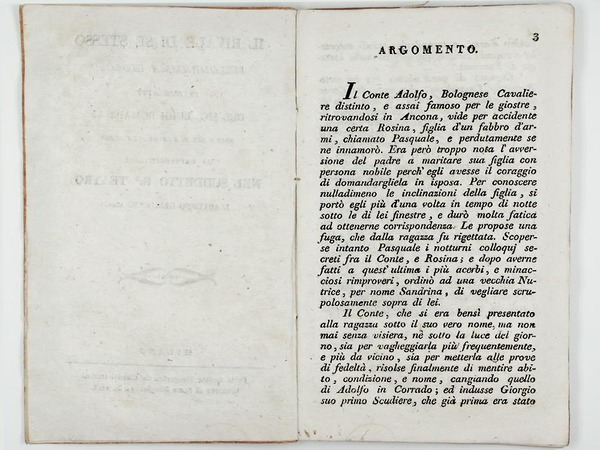 3
ARGOMENTO.
Il Conte Adolfo, Bolognese Cavalie-
re distinto, e assai famoso per le giostre,
ritrovandosi in Ancona, vide per accidente
una certa Rosina, figlia d'un fabbro d'ar-
mi, chiamato Pasquale, e perdutamente se
ne innamorò. Era però troppo nota l'avver-
sione del padre a maritare sua figlia con
persona nobile perch'egli avesse il coraggio
di domandargliela in isposa. Per conoscere
nulladimeno le inclinazioni della figlia, si
portò egli più d'una volta in tempo di notte
sotto le di lei finestre, e durò molta fatica
ad ottenerne corrispondenza. Le propose una
fuga, che dalla ragazza fu rigettata. Scoper-
se intanto Pasquale i notturni colloquj se-
creti fra il Conte, e Rosina; e dopo averne
fatti a quest'ultima i più acerbi, e minac-
ciosi rimproveri, ordinò ad una vecchia Nu-
trice, per nome Sandrina, di vegliare scru-
polosamente sopra di lei.
Il Conte, che si era bensì presentato
alla ragazza sotto il suo vero nome, ma non
mai senza visiera, nè sotto la luce del gior-
no, sia per vagheggiarla più frequentemente,
e più da vicino, sia per metterla alle prove
di fedeltà, risolse finalmente di mentire abi-
to, condizione, e nome, cangiando quello
di Adolfo in Corrado; ed indusse Giorgio
suo primo Scudiere, che già prima era stato